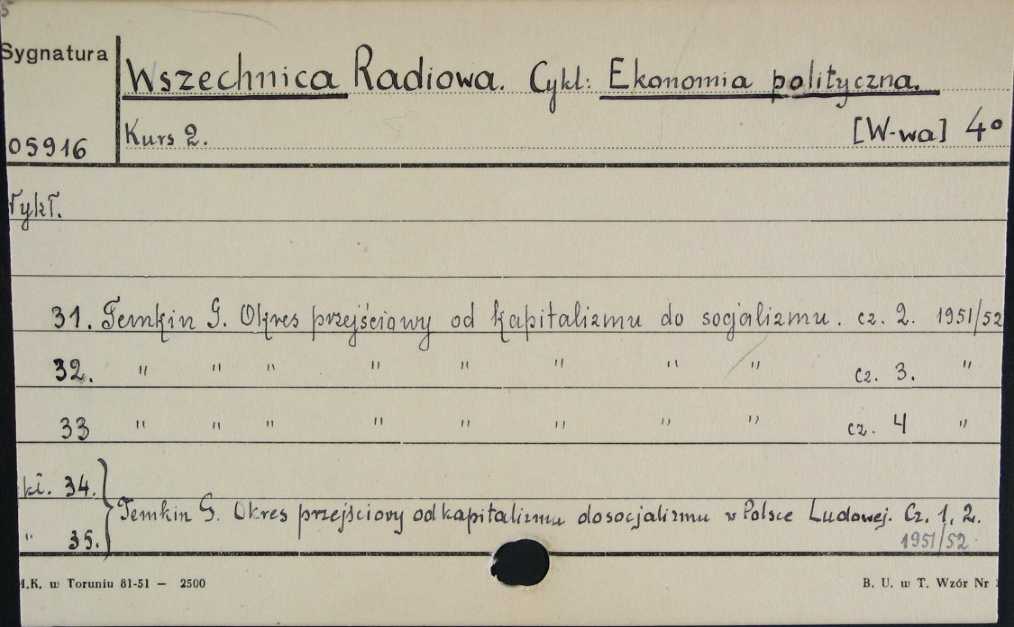 Sygnatura
Wszechnica Radiowa. Cykl: Ekonomia polityczna.
05916 Kurs 2. [W-wa] 4°
Wykł.
31. Temkin G. Okres przejściowy od kapitalizmu do socjalizmu. cz. 2. 1951/52
32. " " " " " " " " cz. 3. "
33 " " " " " " " " cz. 4 "
34.
Temkin G. Okres przejściowy od kapitalizmu do socjalizmu w Polsce Ludowej. Cz. 1, 2.
" 35. 1951/52
.K. w Toruniu 81-51 — 2500 B. U. w T. Wzór Nr